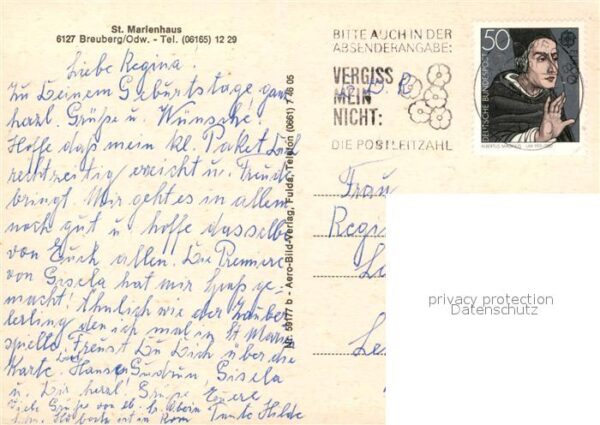 St. Marienhaus
6127 Breuberg/Odw. - Tel. (06165) 12 29
Liebe Regina.
Zu Deinem Geburtstage ganz
herzl. Grüße u. Wünsche!
Hoffe daß mein kl. Paket Dich
rechtzeitig erreicht u. Freude
bringt. Mir geht es in allem
noch gut u hoffe dasselbe
von Euch allen. Die Premiere
von Gisela hat mir Spaß ge-
macht! Ähnlich wie der Zauber
lerling den ich mal in St. Marien
spielte. Freust Du Dich über die
Karte. Hansen Gudrun, Gisela
u. Dir herzl. Grüße Eure
Tante Hilde
Viele Grüße von
ist in Rom
Nr. 59177 b - Aero-Bild-Verlag, Fulda, Telefon (0661) 7 46 05
BITTE AUCH IN DER
ABSENDERANGABE:
VERGISS
MEIN
NICHT:
DIE POSTLEITZAHL
50
DEUTSCHE BUNDESPOST
ALBERTUS MAGNUS
Frau
Regina
privacy protection
Datenschutz